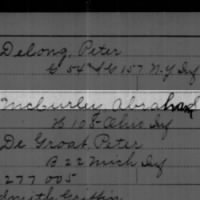 Delong, Peter
G 54 & G 157 N.Y Inf
McCurley, Abraham
H 108 Ohio Inf
De Groat, Peter
B 22 Mich Inf
277 005
Smyth Griffin